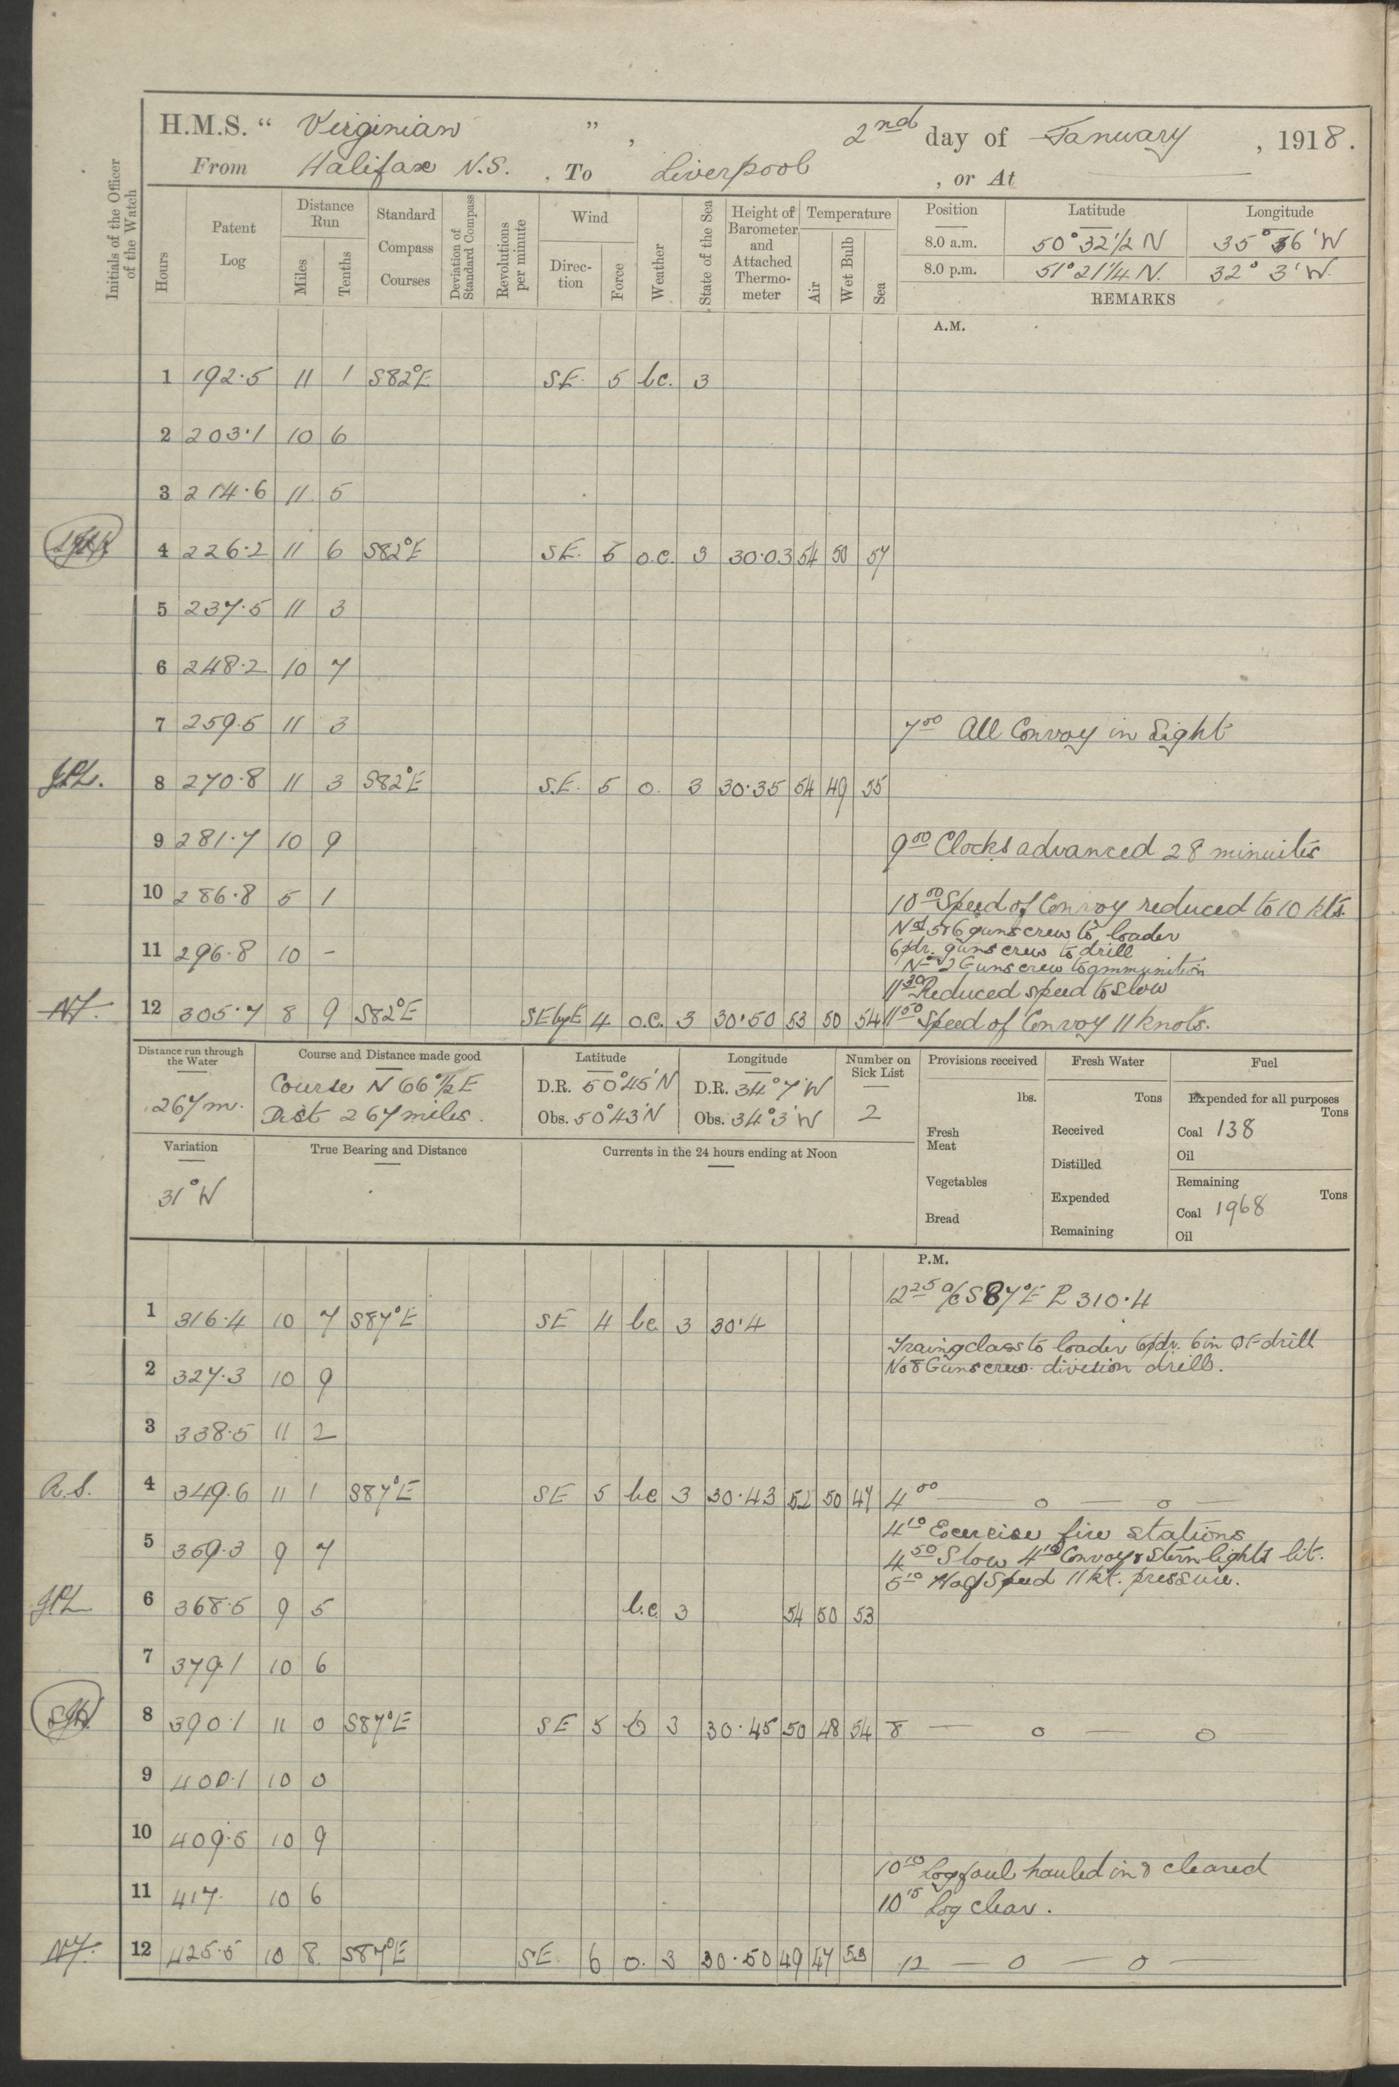 H.M.S. “ Virginian ” , 2nd day of January , 1918.
From Halifax N.S. , To Liverpool , or At
Initials of the Officer of the Watch
Hours
Patent Log
Distance Run
Miles
Tenths
Standard Compass Courses
Deviation of Standard Compass
Revolutions per minute
Wind
Direction
Force
Weather
State of the Sea
Height of Barometer and Attached Thermometer
Temperature
Air
Wet Bulb
Sea
Position Latitude Longitude
8.0 a.m. 50° 32'1/2 N 35° 56' W
8.0 p.m. 51° 21'1/4 N. 32° 3' W.
REMARKS
A.M.
1 192.5 11 1 S82°E SE. 5 bc. 3
2 203.1 10 6
3 214.6 11 5
4 226.2 11 6 S82°E SE. 5 o.c. 3 30.03 54 50 57
5 237.5 11 3
6 248.2 10 7
7 259.5 11 3 7 00 All Convoy in Sight
JPL. 8 270.8 11 3 S82°E S.E. 5 o. 3 30.35 54 49 55
9 281.7 10 9 9 00 Clocks advanced 28 minuites
10 286.8 5 1 10 00 Speed of Convoy reduced to 10 kts.
Nos 5 & 6 guns crew to loader
11 296.8 10 - 6pdr. guns crew to drill
No 2 Guns crew to ammunition
11 30 Reduced speed to slow
12 305.7 8 9 S82°E SEbyE 4 o.c. 3 30.50 53 50 54 11 50 Speed of Convoy 11 knots.
Distance run through the Water
267 m.
Course and Distance made good
Course N 66°1/2 E
Dist 267 miles.
Latitude
D.R. 50°45'N
Obs. 50°43'N
Longitude
D.R. 34°7'W
Obs. 34°3'W
Number on Sick List
2
Provisions received
lbs.
Fresh Meat
Vegetables
Bread
Fresh Water
Tons
Received
Distilled
Expended
Remaining
Fuel
Expended for all purposes
Tons
Coal 138
Oil
Remaining
Tons
Coal 1968
Oil
Variation
31°W
True Bearing and Distance
Currents in the 24 hours ending at Noon
P.M.
12 25 a/c S87°E P 310.4
1 316.4 10 7 S87°E SE 4 bc 3 30.4
Traing class to loader 6pdr. 6in QF drill
2 327.3 10 9 No 8 Guns crew. division drill.
3 338.5 11 2
A.S. 4 349.6 11 1 S87°E SE 5 bc 3 30.43 52 50 47 4 00 — o — o —
4 10 Exercise fire stations
5 359.3 9 7 4 50 Slow 4 10 Convoy & Stern lights lit.
5 10 Half Speed 11 kt. pressure.
JPL 6 368.5 9 5 b.c. 3 54 50 53
7 379.1 10 6
8 390.1 11 0 S87°E SE 5 b 3 30.45 50 48 54 8 — o — o
9 400.1 10 0
10 409.5 10 9
10 10 Log foul hauled in & cleared
11 417. 10 6 10 15 Log clear.
12 425.5 10 8 S87°E SE. 6 o. 3 30.50 49 47 53 12 — o — o —